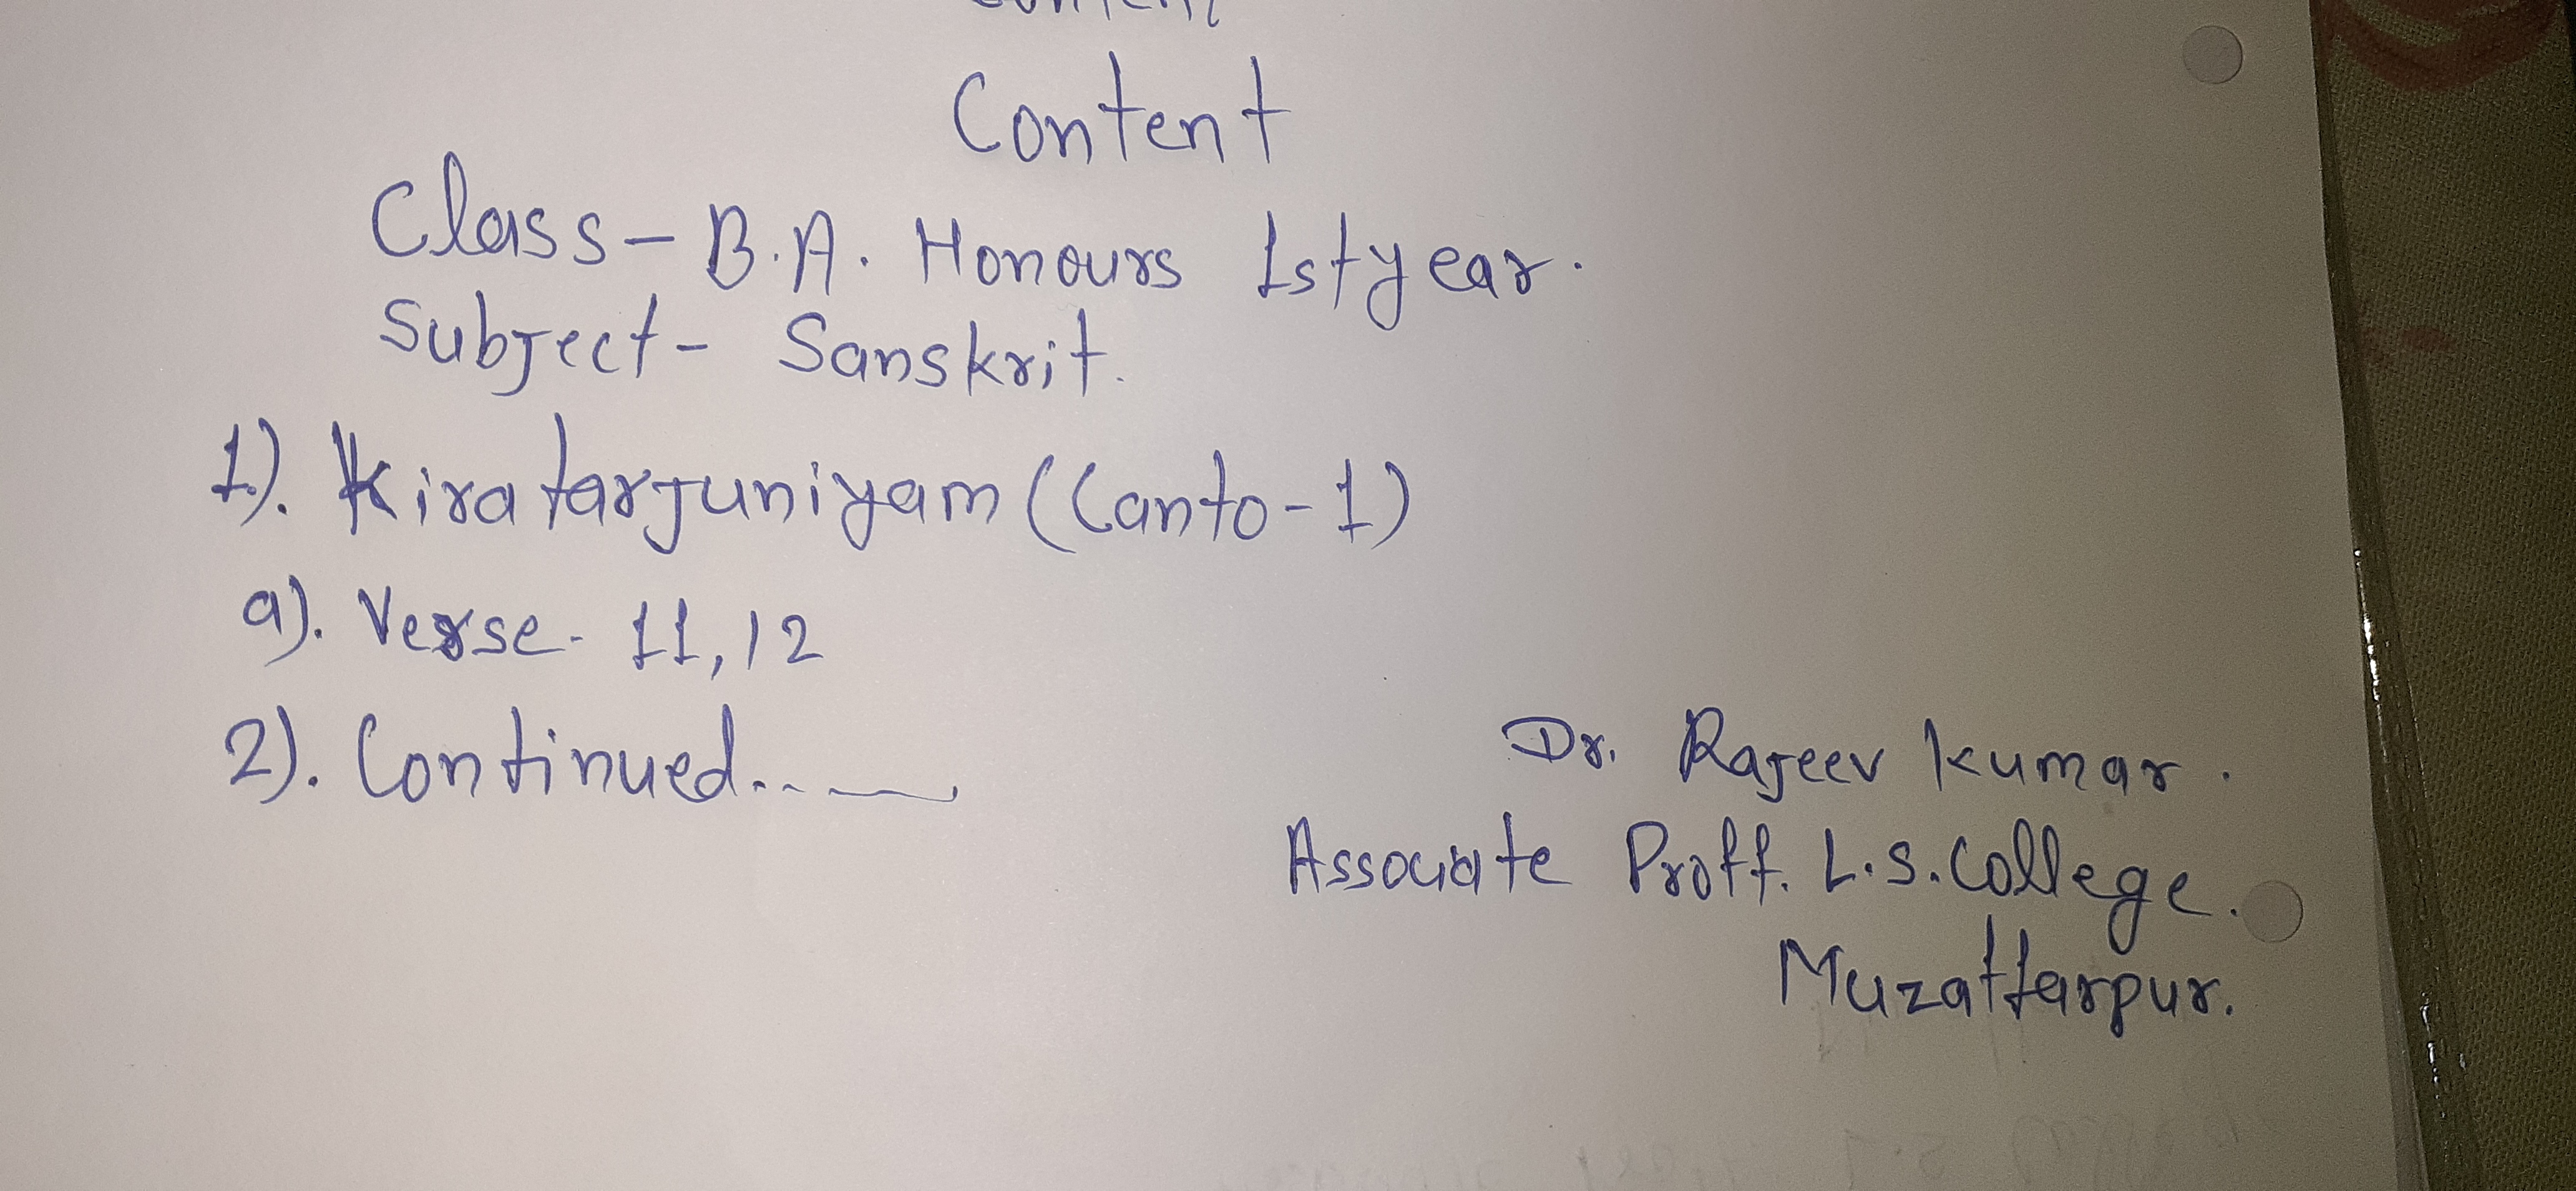 Content
Class - B.A. Honours 1st year.
Subject - Sanskrit.
1). Kiratarjuniyam (Canto-1)
a). Verse - 11, 12
2). Continued.....
Dr. Rajeev Kumar.
Associate Proff. L.S. College.
Muzaffarpur.